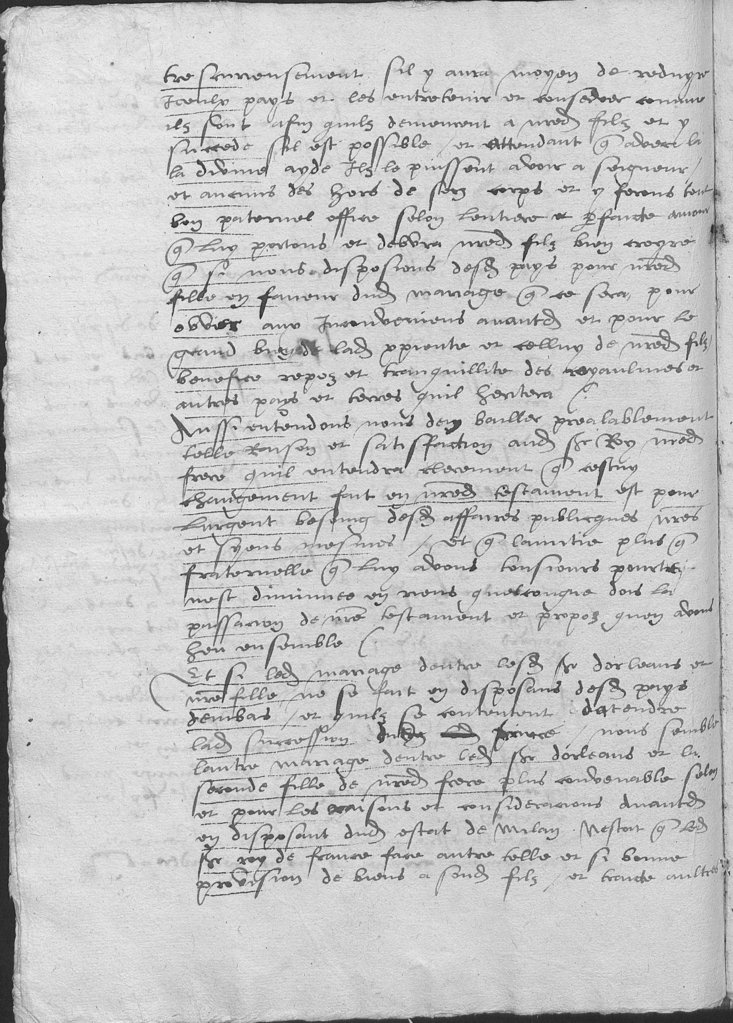 tre seurement sil y aura moyen de reduyre
Iceulx pays et les entretenir et conseder comme
ilz sont afin quilz demeurent a nred filz et y
succede sil est possible / et attendant q avecq la
la divine ayde Ilz le puissent avoir a seigneur /
et aucuns des hors de sen corps et y ferons tout
bon paternel office selon lentiere et pfaicte amour
q luy portons et debvra nred filz bien croyre
q si nous disposions desd pays pour nred
fille en faveur dud mariage q ce sera pour
obvier aux Inconveniens avantd et pour le
grand bien de lad xpiente et celluy de nred filz
benefice repoz et tranquillite des royaulmes et
autres pays et terres quil heritera /
Aussi entendons nous den bailler prealablement
telle Raison et satisfaction aud Sr Roy nred
frere quil entendra clerement q cestuy
changement fait en nred testament est pour
lurgent besoing desd affaires publicques nres
et syens mesmes / et q lamitie plus q
fraternelle q luy avons tousiours pourte
nest diminuee en riens quelconque dois la
passacion de nre testament et propoz quen avons
heu ensemble /
Et si led mariage dentre lesd Sr dorleans et
nre fille ne se fait en disposans desd pays
dembas / et quilz se contentent datendre
lad succession nous semble
lautre mariage dentre led Sr dorleans et la
seconde fille de nred frere plus convenable selon
et pour les raisons et consideracions avantd
en disposant dud estat de Milan Restat q led
Sr roy de france face autre telle et si bonne
provision de biens a sond filz / et traicte aultres